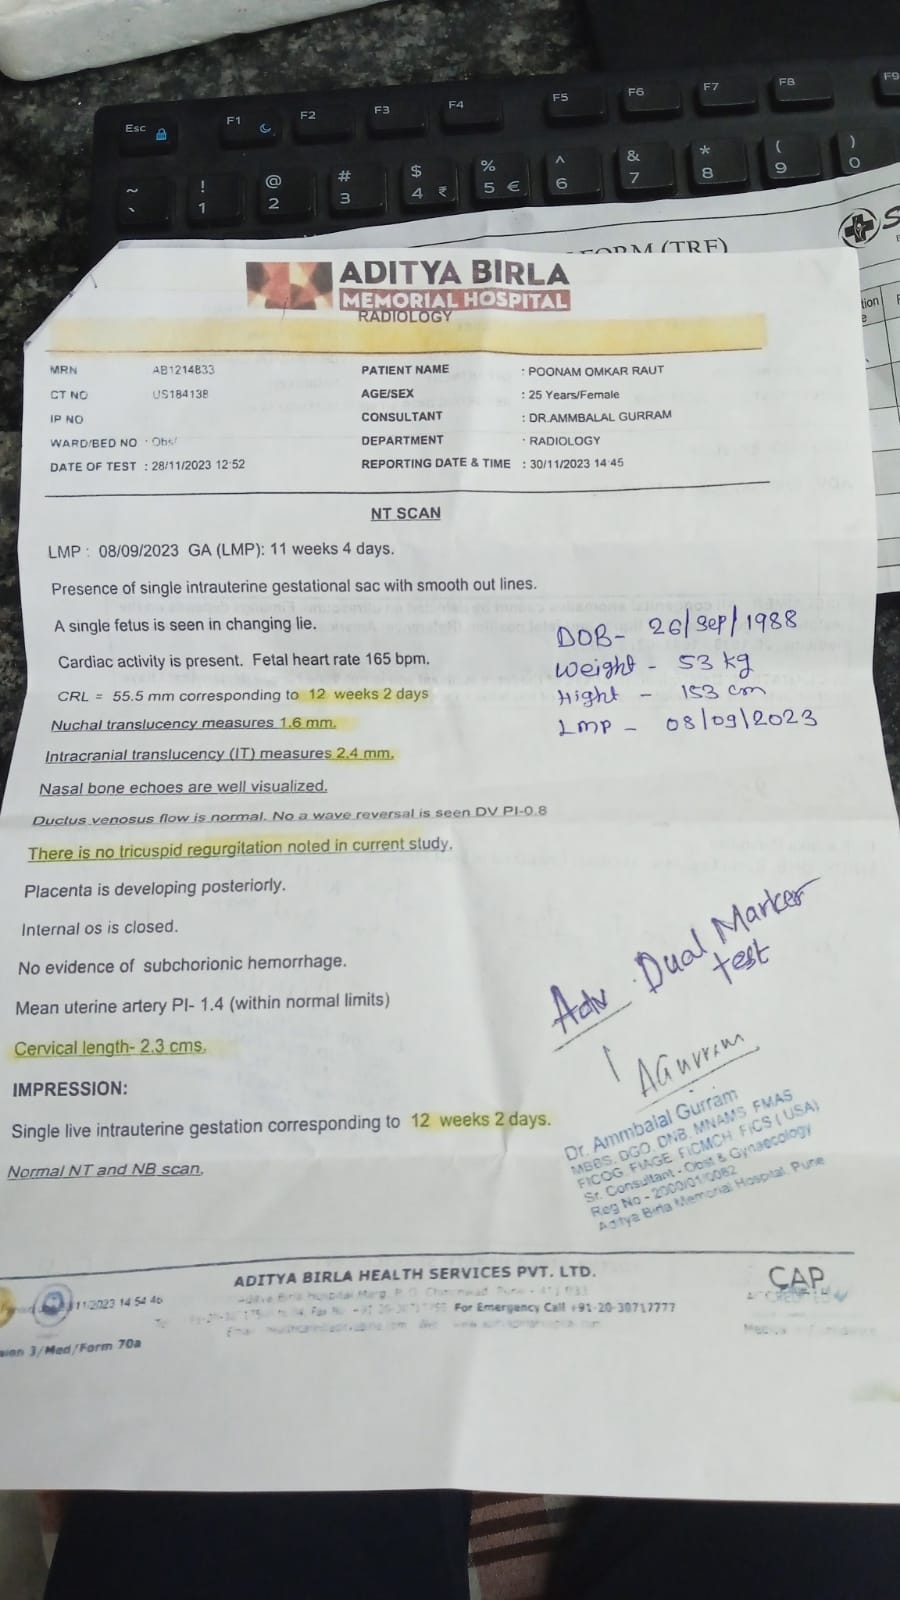 Esc F1 F2 F3 F4 F5 F6 F7 F8 F9
~ ` ! 1 @ 2 # 3 $ 4 ₹ % 5 € ^ 6 & 7 * 8 ( 9 ) 0
FORM (TRF)
ADITYA BIRLA
MEMORIAL HOSPITAL
RADIOLOGY
MRN AB1214833 PATIENT NAME : POONAM OMKAR RAUT
CT NO US184138 AGE/SEX : 25 Years/Female
IP NO CONSULTANT : DR.AMMBALAL GURRAM
WARD/BED NO : Obs/ DEPARTMENT : RADIOLOGY
DATE OF TEST : 28/11/2023 12:52 REPORTING DATE & TIME : 30/11/2023 14:45
NT SCAN
LMP : 08/09/2023 GA (LMP): 11 weeks 4 days.
Presence of single intrauterine gestational sac with smooth out lines.
A single fetus is seen in changing lie.
Cardiac activity is present. Fetal heart rate 165 bpm.
CRL = 55.5 mm corresponding to 12 weeks 2 days
Nuchal translucency measures 1.6 mm.
Intracranial translucency (IT) measures 2.4 mm.
Nasal bone echoes are well visualized.
Ductus venosus flow is normal. No a wave reversal is seen DV PI-0.8
There is no tricuspid regurgitation noted in current study.
Placenta is developing posteriorly.
Internal os is closed.
No evidence of subchorionic hemorrhage.
Mean uterine artery PI- 1.4 (within normal limits)
Cervical length- 2.3 cms.
IMPRESSION:
Single live intrauterine gestation corresponding to 12 weeks 2 days.
Normal NT and NB scan.
DOB- 26/Sep/1988
Weight - 53 kg
Hight - 153 cm
Lmp - 08/09/2023
Adv. Dual Marker
test
AGurram
Dr. Ammbalal Gurram
MBBS, DGO, DNB, MNAMS, FMAS
FICOG, FIAGE, FICMCH, FICS (USA)
Sr. Consultant - Obst & Gynaecology
Reg No - 2000/01/0082
Aditya Birla Memorial Hospital, Pune
ADITYA BIRLA HEALTH SERVICES PVT. LTD.
For Emergency Call +91-20-30717777
11/2023 14 54 46
3/Med/Form 70a
CAP
ACCREDITED